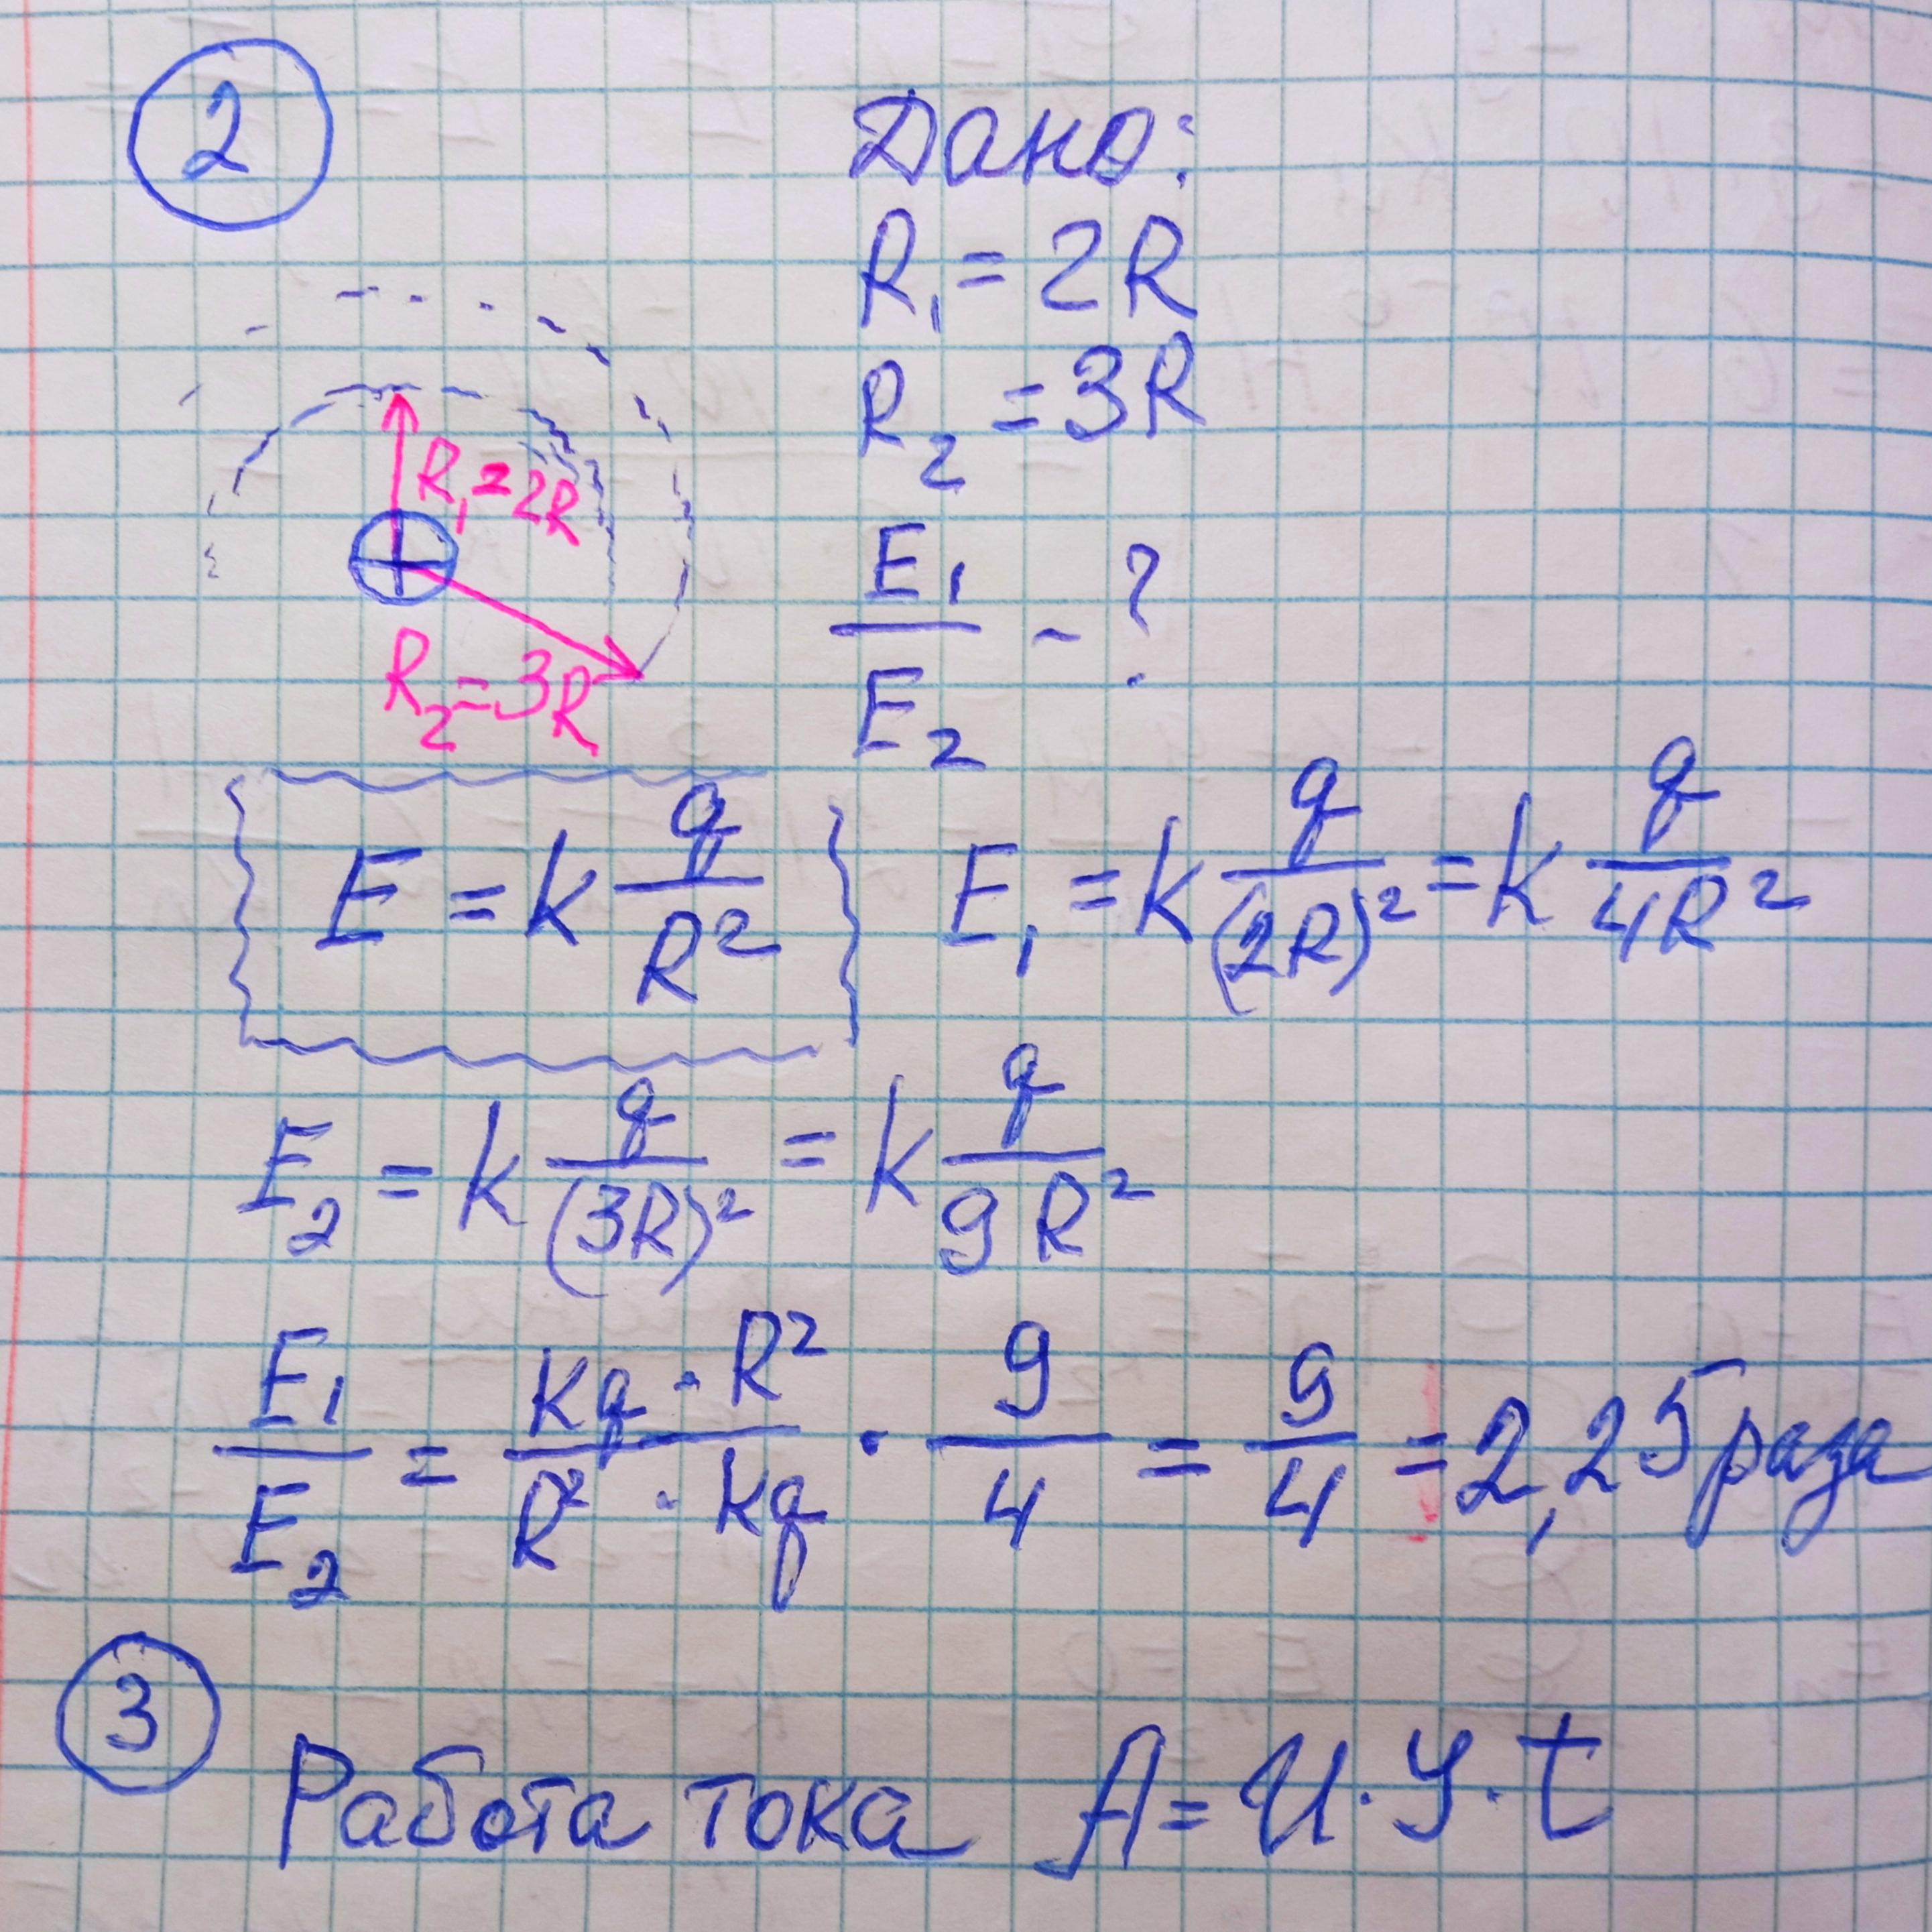 2
Дано:
R₁ = 2R
R₂ = 3R
R₁ = 2R
R₂ = 3R
E₁/E₂ - ?
E = k q/R²
E₁ = k q/(2R)² = k q/4R²
E₂ = k q/(3R)² = k q/9R²
E₁/E₂ = kq · R²/R² · kq · 9/4 = 9/4 = 2,25 раза
3
Работа тока A = U · I · t